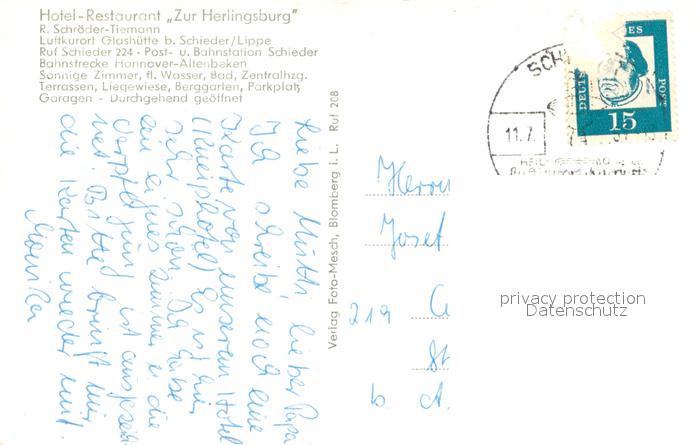 Hotel-Restaurant „Zur Herlingsburg"
R. Schröder-Tiemann
Luftkurort Glashütte b. Schieder/Lippe
Ruf Schieder 224 · Post- u. Bahnstation Schieder
Bahnstrecke Hannover-Altenbeken
Sonnige Zimmer, fl. Wasser, Bad, Zentralhzg.
Terrassen, Liegewiese, Berggarten, Parkplatz
Garagen - Durchgehend geöffnet
Liebe Mutti, lieber Papa
Ich schreibe noch eine
Karte von unserem Hotel
Es ist hier
sehr schön. Ich habe
ein eigenes Zimmer u. die
Verpflegung ist ausgezeich
net. Bitte bringt mir
die Karten wieder mit.
Monika
Verlag Foto-Mesch, Blomberg i. L. Ruf 208
SCHI
11.7.
DEUTS
ES
POST
15
Herrn
Josef
219 C
St
b. A.
privacy protection
Datenschutz